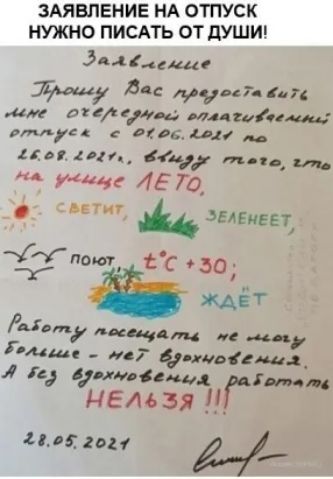 ЗАЯВЛЕНИЕ НА ОТПУСК
НУЖНО ПИСАТЬ ОТ ДУШИ!
Заявление
Прошу Вас предоставить
мне очередной оплачиваемый
отпуск с 01.06.2021 по
26.08.2021г., ввиду того, что
на улице ЛЕТО,
СВЕТИТ, ЗЕЛЕНЕЕТ,
ПОЮТ, t°C +30;
ЖДЁТ
Работу посещать не могу
больше - нет вдохновения.
А без вдохновения работать
НЕЛЬЗЯ !!!
28.05.2021